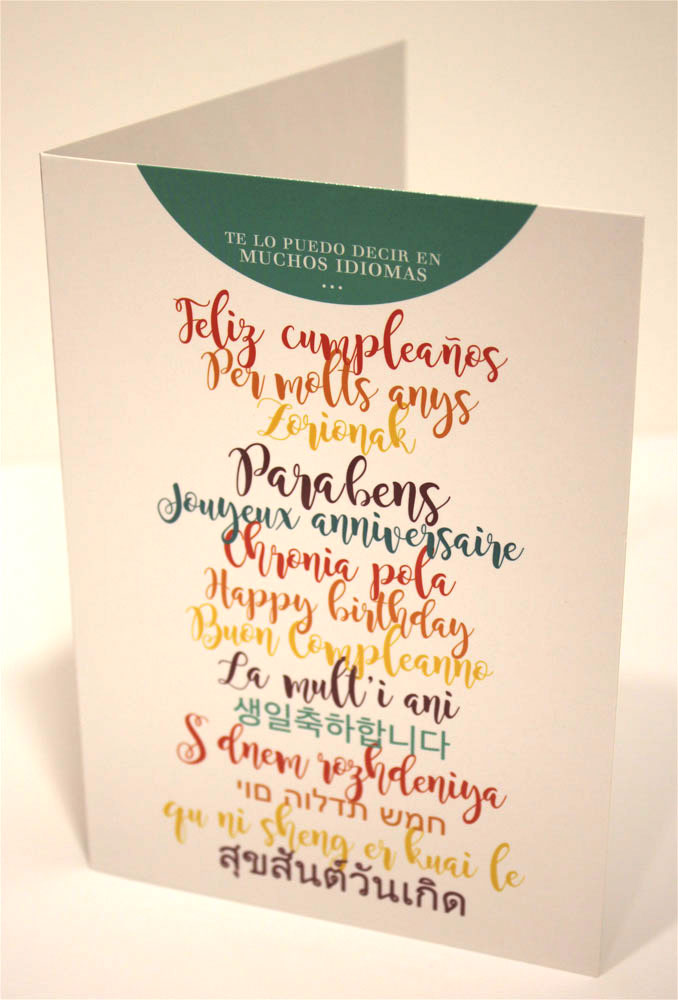 TE LO PUEDO DECIR EN
MUCHOS IDIOMAS
...
Feliz cumpleaños
Per molts anys
Zorionak
Parabens
Jouyeux anniversaire
Chronia pola
Happy birthday
Buon Compleanno
La mult'i ani
생일축하합니다
S dnem rozhdeniya
חמש תדלוה םוי
qu ni sheng er kuai le
สุขสันต์วันเกิด